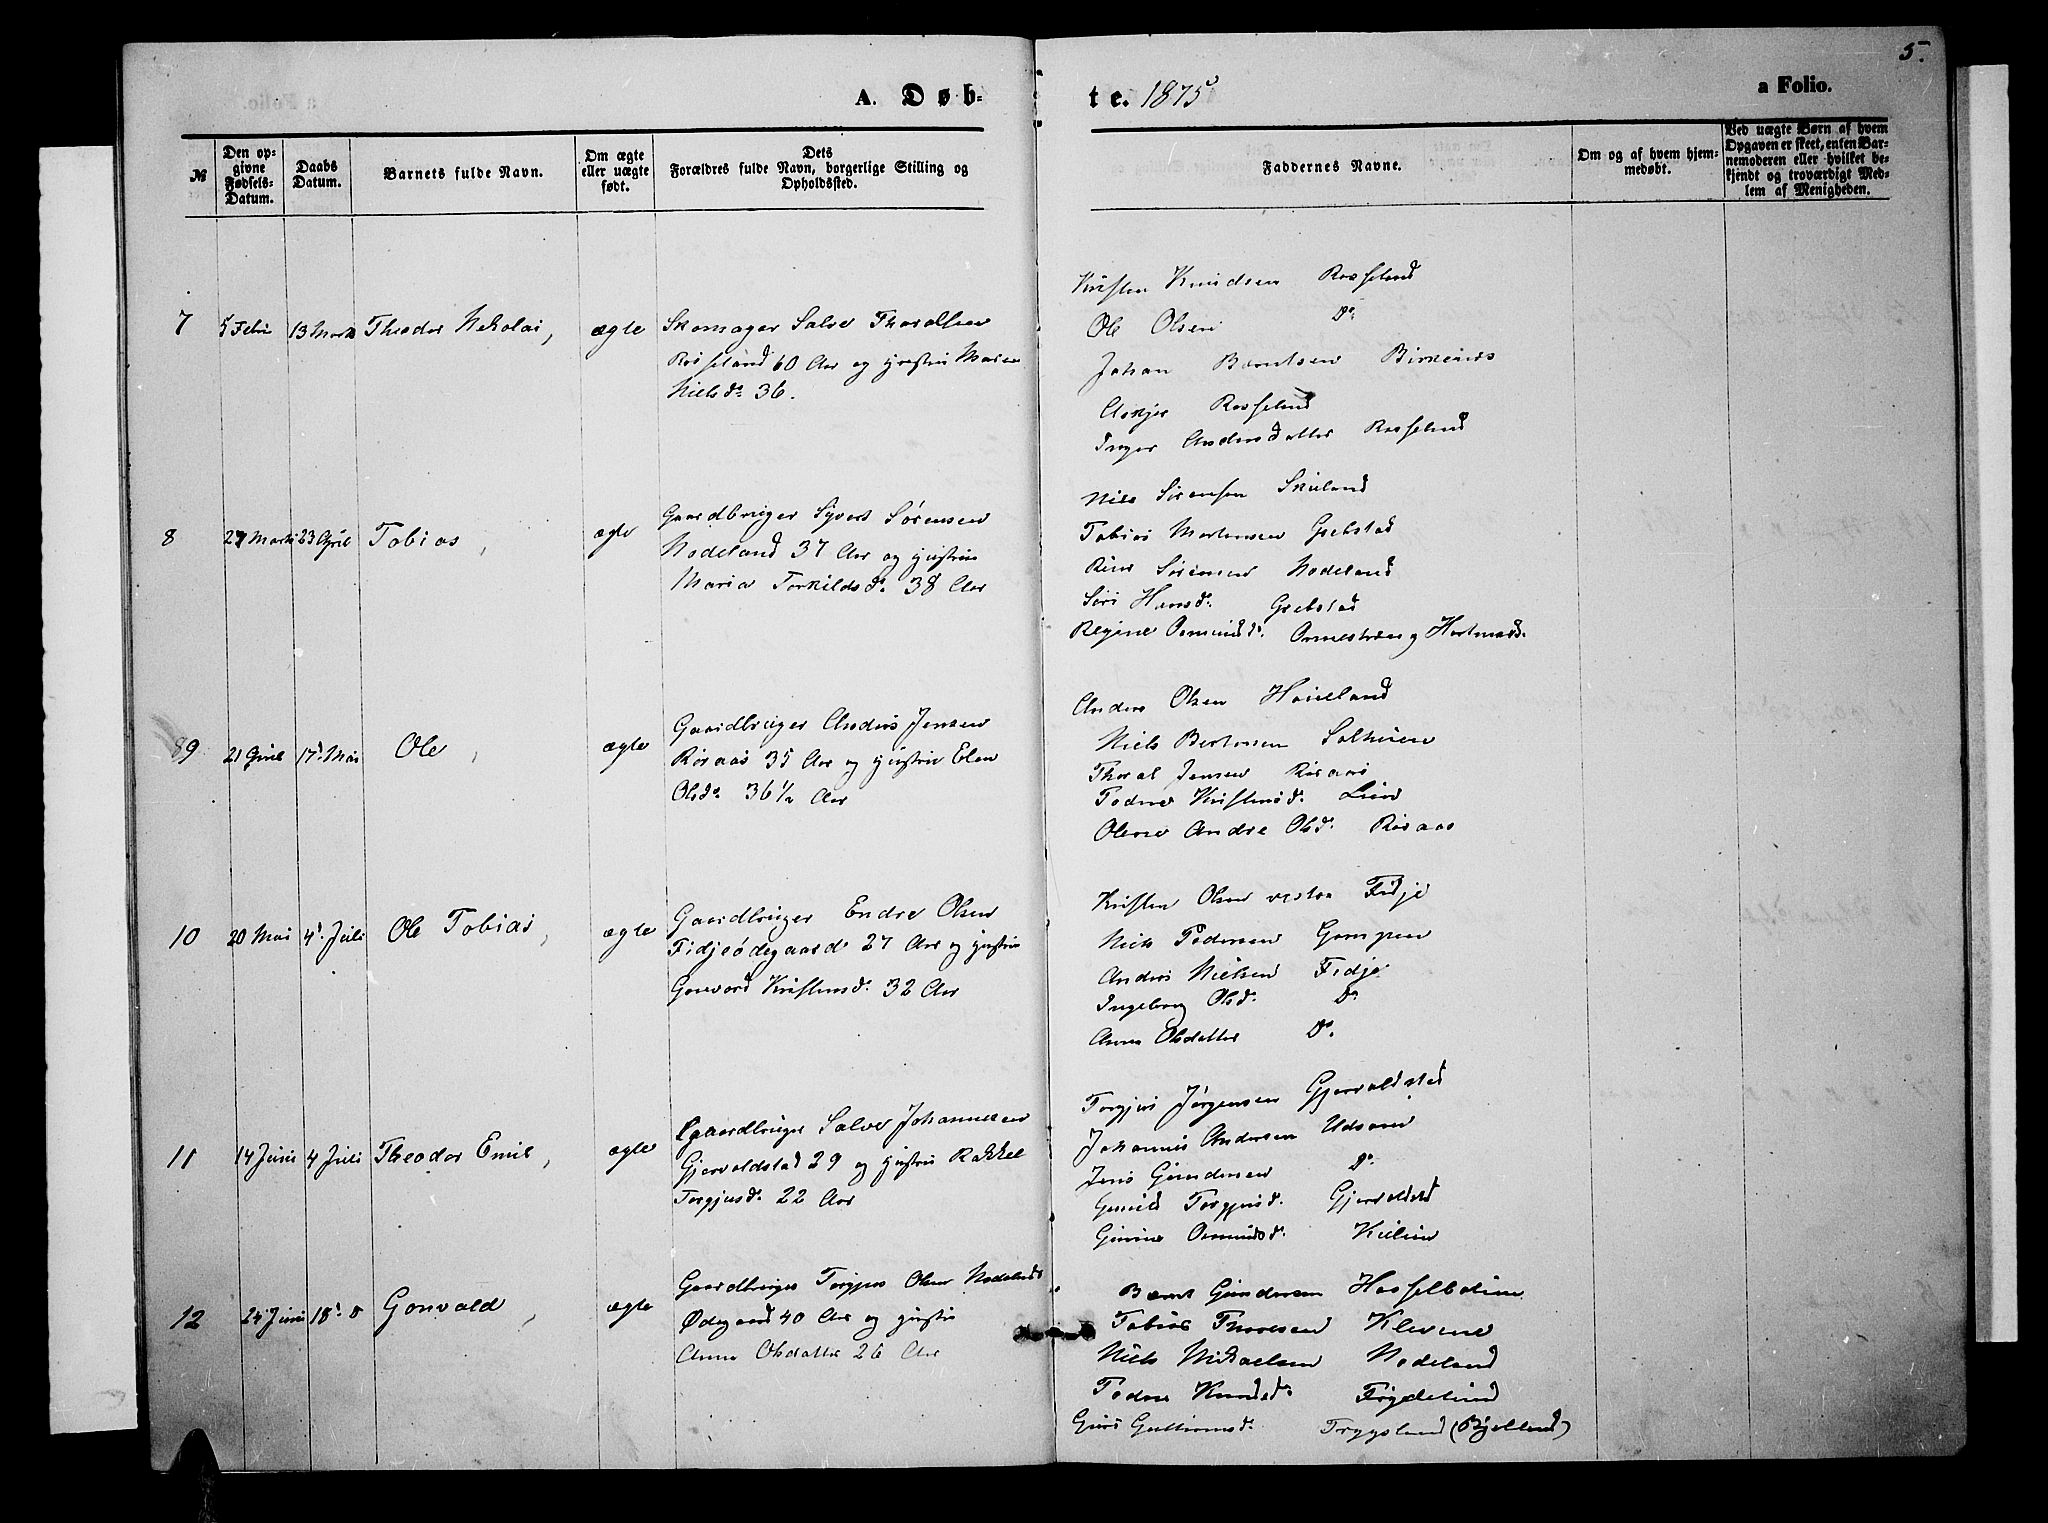 5.
A. Døb-
te. 1875
a Folio.
№
Den op-
givne
Fødsels-
Datum.
Daabs
Datum.
Barnets fulde Navn.
Om ægte
eller uægte
født.
Dets
Forældres fulde Navn, borgerlige Stilling og
Opholdssted.
Faddernes Navne.
Om og af hvem hjem-
medøbt.
Ved uægte Børn af hvem
Opgaven er skeet, enten Bar-
nemoderen eller hvilket be-
kjendt og troværdigt Med-
lem af Menigheden.
7 5 Febr 13 Marts Theodor Nekolai, ægte
Skomager Salve Thorolfsen
Rosseland 60 Aar og Hustru Maren
Nielsd. 36.
Kristen Knudsen Rosseland
Ole Olsen Do.
Johan Berntsen Birkenes
Rosseland
Inger Andersdatter Rosseland
8 27 Marts 23 April Tobias, ægte
Gaardbruger Syvert Sørensen
Nodeland 37 Aar og Hustru
Maria Torkildsd. 38 Aar
Niels Sørensen Skuland
Tobias Mortensen Grebstad
Sørensen Nodeland
Siri Hansd. Grebstad
Regine Osmundsd.
89 21 April 17. Mai Ole, ægte
Gaardbruger Anders Jensen
Røsaas 35 Aar og Hustru Elen
Olsd. 36 1/2 Aar
Anders Olsen
Niels Berntsen
Jensen Røsaas
Todne Kristensd. Lien
Olene Andre Olsd. Røsaas
10 20 Mai 4. Juli Ole Tobias, ægte
Gaardbruger Endre Olsen
Fidjeødegaard 27 Aar og Hustru
Gonvord Kristensd. 32 Aar
Kristen Olsen vestre Fidje
Niels Pedersen
Anders Nielsen Fidje
Ingeborg Olsd. Do.
Anna Olsdatter Do.
11 14 Juni 4 Juli Theodor Emil, ægte
Gaardbruger Salve Johannesen
Gjervoldstad 29 og Hustru Rakkel
Torgjusd. 22 Aar
Torgjus Jørgensen Gjervoldstad
Johannes Andersen Udsaan
Jens Gundersen Do.
Gunild Torgjusd. Gjervoldstad
Osmundsd.
12 24 Juni 18. Gonvald, ægte
Gaardbruger Torgjus Olsen Nodelands
Ødegaard 40 Aar og Hustru
Anna Olsdatter 26 Aar
Bernt Gundersen
Tobias Thorsen Klevene
Niels Mikaelsen Nodeland
Todne Knudsd. Frydelund
Guri Guttormsd. Trygsland (Bjelland)